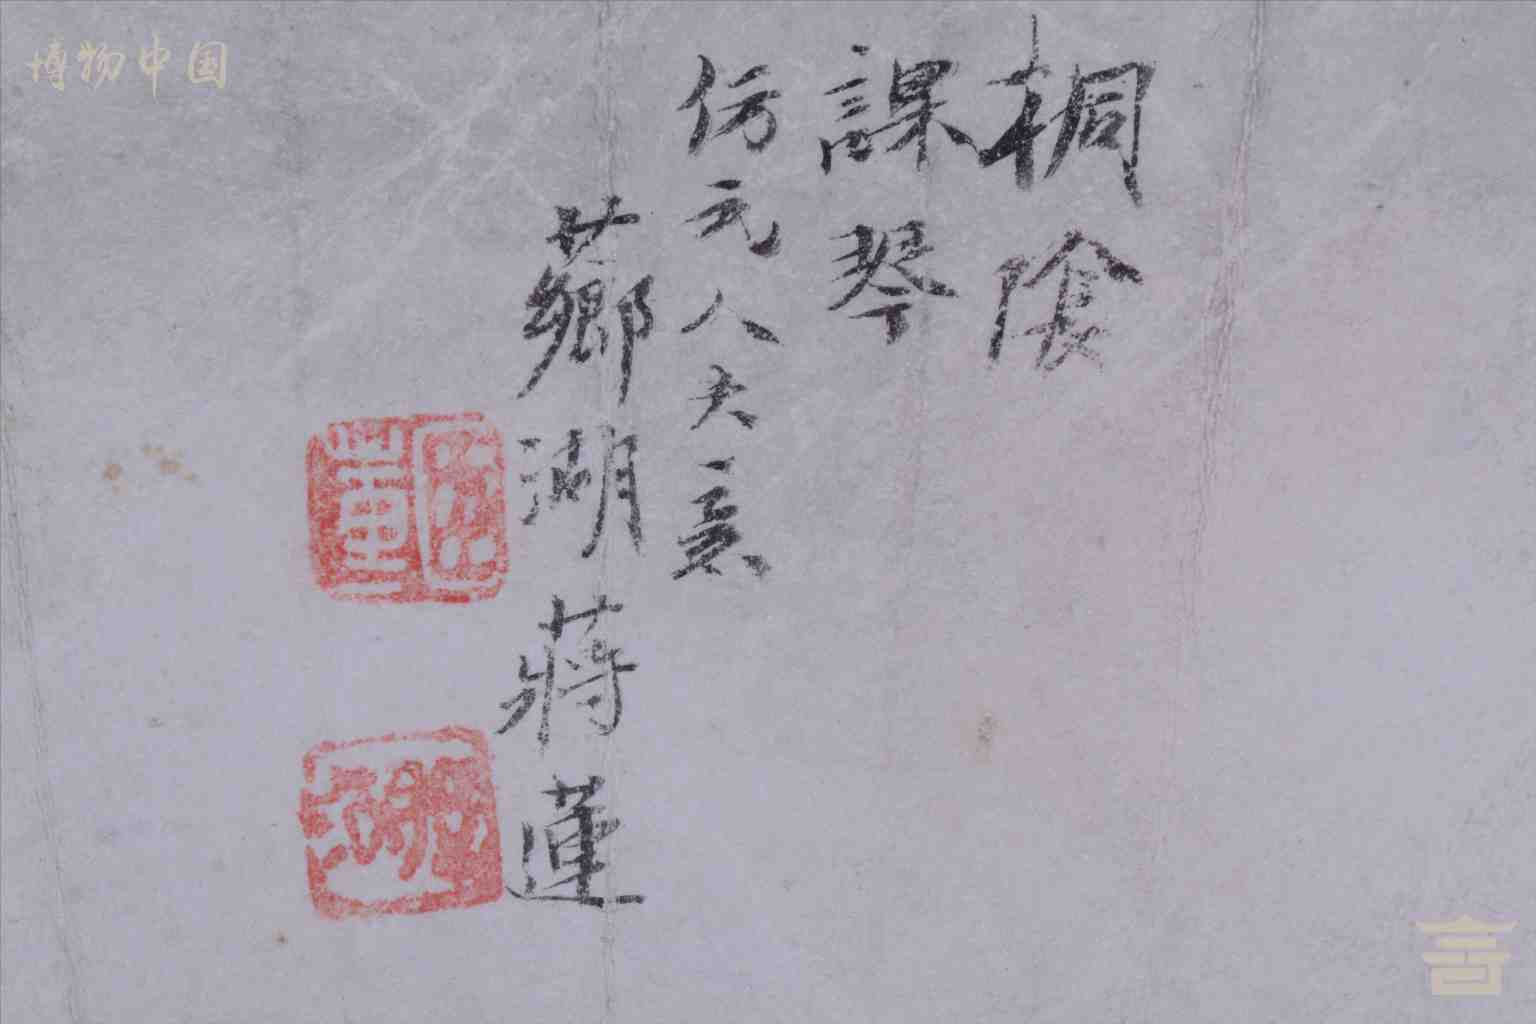 博物中国
桐陰
課琴
仿元人大意
薌湖蔣蓮